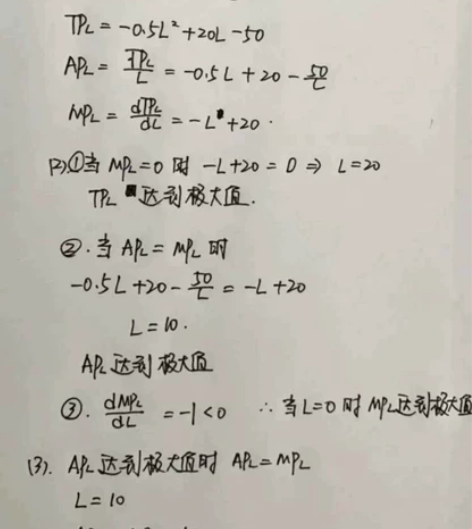 TPL = -0.5L² + 20L - 50
APL = TPL/L = -0.5L + 20 - 50/L
MPL = dTPL/dL = -L + 20.
(2)①当 MPL=0 时 -L+20=0 ⇒ L=20
TPL 达到极大值.
②.当 APL=MPL 时
-0.5L+20-50/L=-L+20
L=10.
APL达到极大值
③. dMPL/dL = -1<0 ∴当L=0时 MPL达到极大值
(3). APL达到极大值时 APL=MPL
L=10